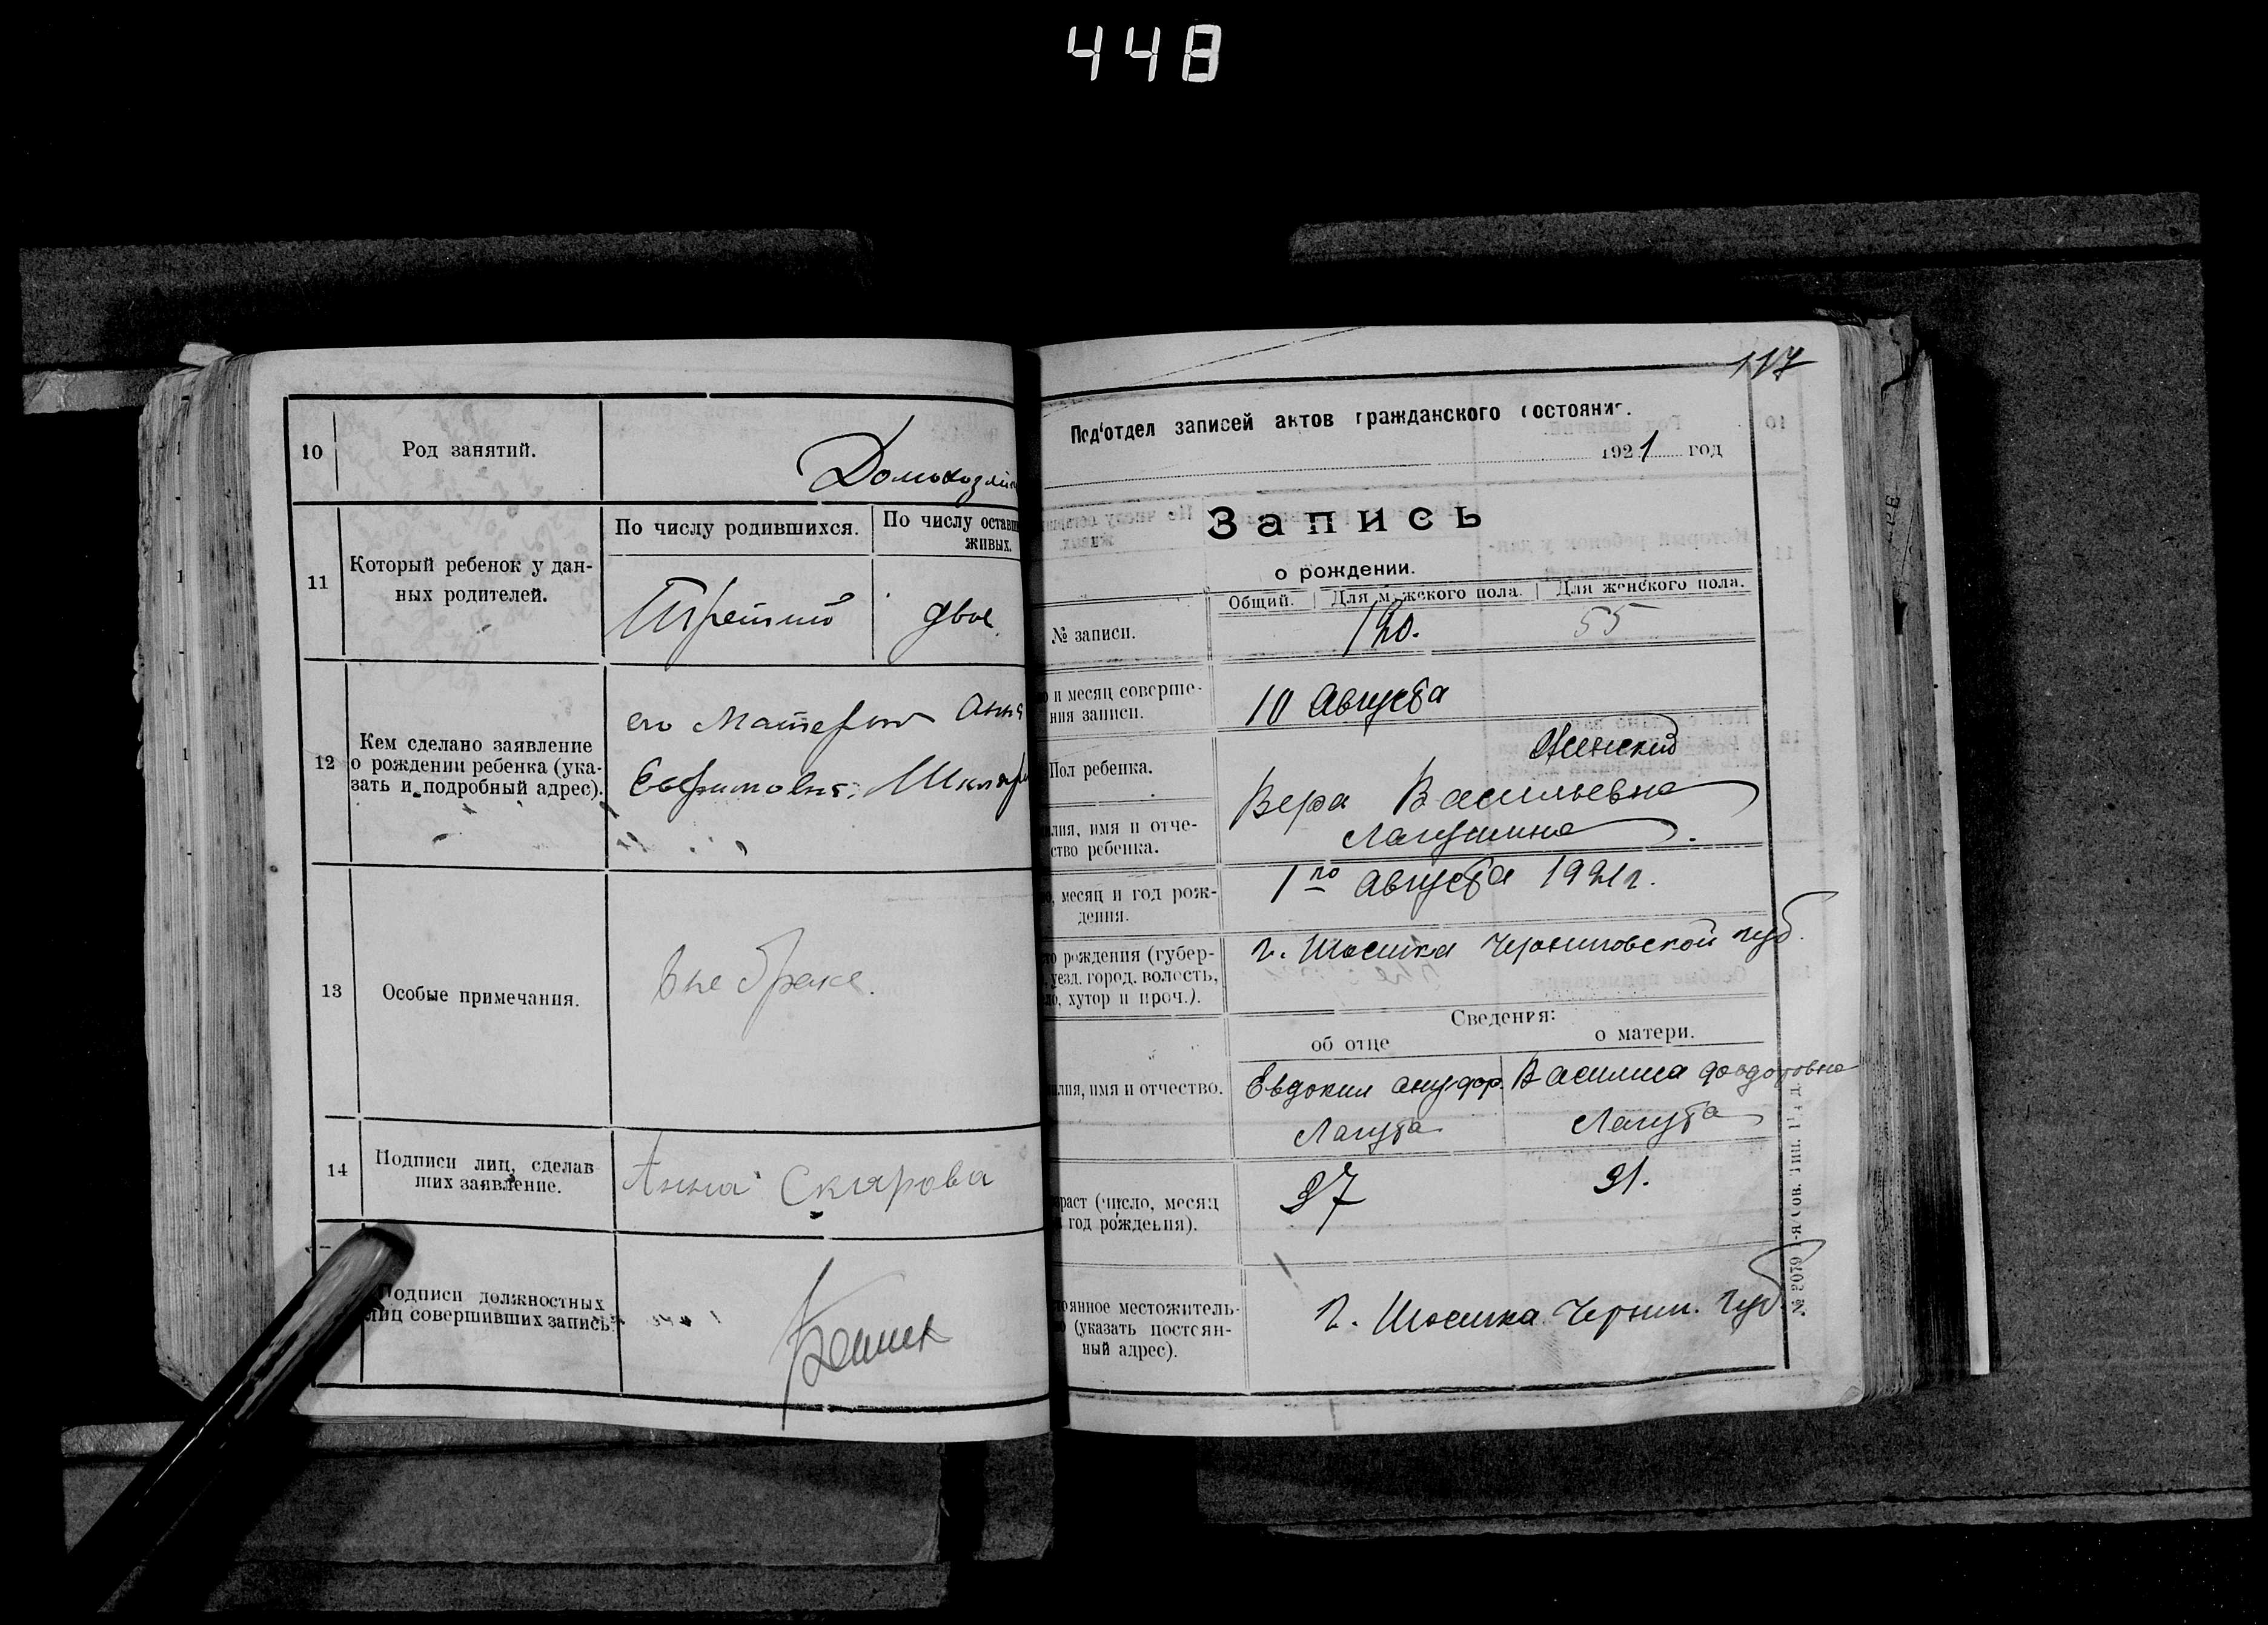 448
10
Род занятий.
11
Который ребенок у дан-
ных родителей.
По числу родившихся.
По числу
живых.
Третий
двое
12
Кем сделано заявление
о рождении ребенка (ука-
зать и подробный адрес).
его Матерью Анна
13
Особые примечания.
вне браке.
14
Подписи лиц, сделав
ших заявление.
Анна
Подписи должностных
лиц совершивших запись
117
Под'отдел записей актов гражданского состояния.
1921 год
Запись
о рождении.
Общий. Для мужского пола. Для женского пола.
№ записи.
120.
55
и месяц соверше-
ния записи.
10 Августа
Пол ребенка.
Женский
имя и отче-
ство ребенка.
Вера Васильевна
месяц и год рож-
дения.
1го Августа 1921 г.
рождения (губер-
уезд, город, волость,
хутор и проч.).
Черниговской губ.
Сведения:
об отце
о матери.
имя и отчество.
Евдоким
Лагута
Василиса
Лагута
(число, месяц
год рождения).
37
31.
местожитель-
(указать постоян-
ный адрес).
Черниг. Губ.